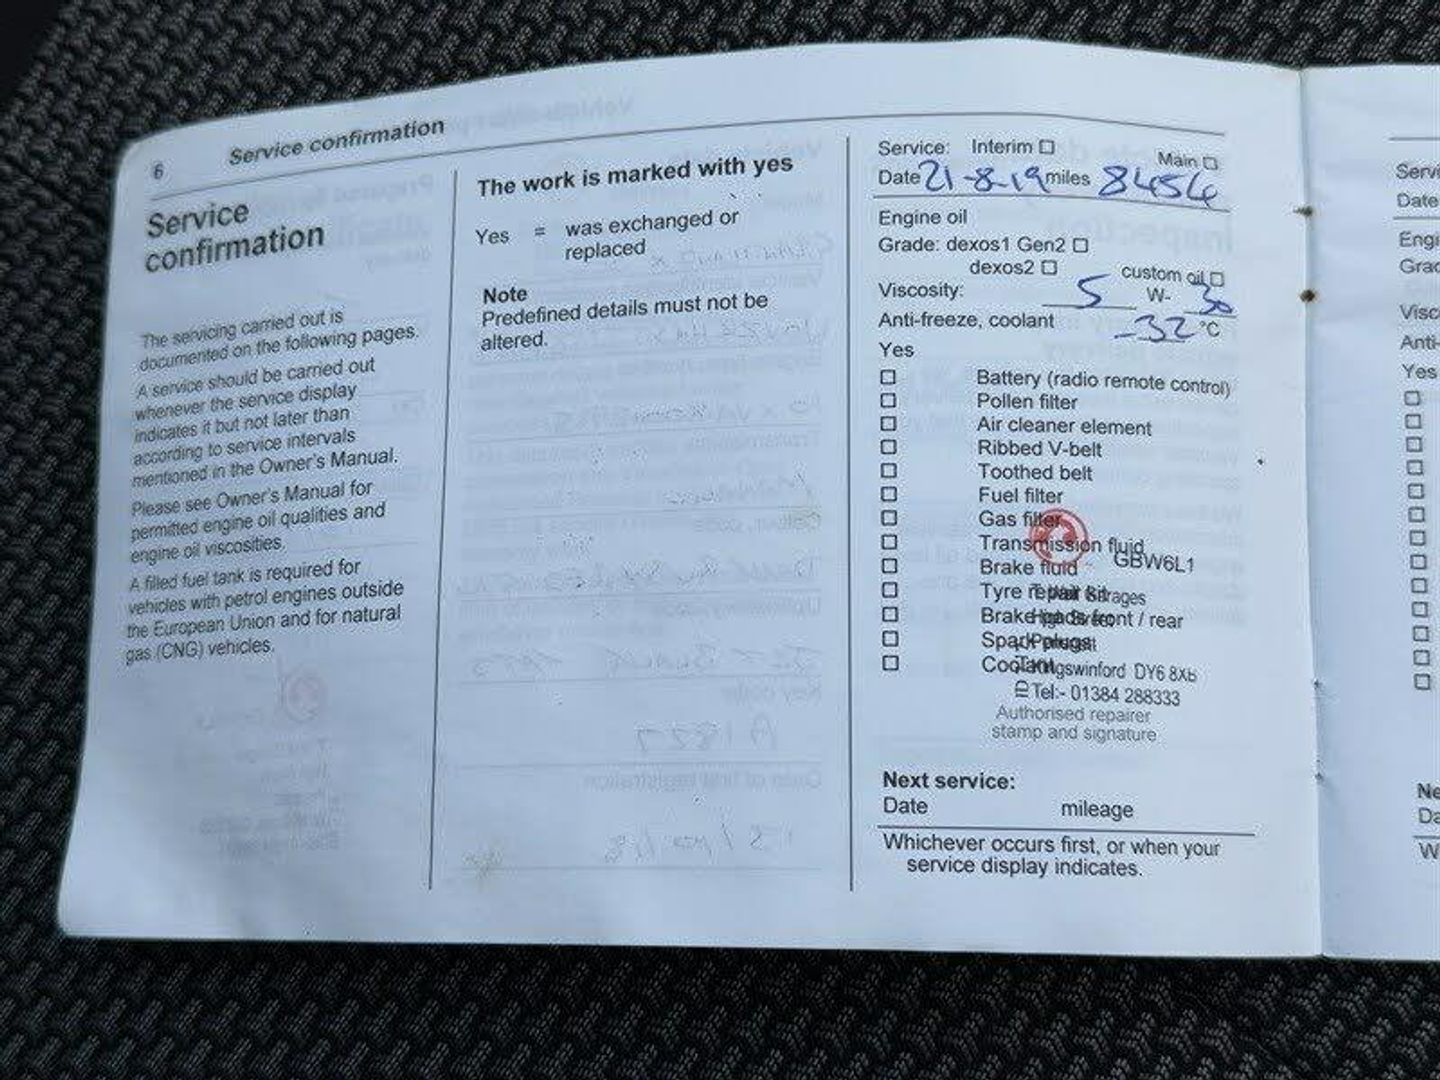 6 Service confirmation
Service
confirmation
The servicing carried out is
documented on the following pages.
A service should be carried out
whenever the service display
indicates it but not later than
according to service intervals
mentioned in the Owner's Manual.
Please see Owner's Manual for
permitted engine oil qualities and
engine oil viscosities.
A filled fuel tank is required for
vehicles with petrol engines outside
the European Union and for natural
gas (CNG) vehicles.
The work is marked with yes
Yes = was exchanged or
replaced
Note
Predefined details must not be
altered.
Service: Interim ☐ Main ☐
Date 21-8-19 miles 8454
Engine oil
Grade: dexos1 Gen2 ☐
dexos2 ☐ custom oil ☐
Viscosity: 5 W- 30
Anti-freeze, coolant -32 °C
Yes
☐ Battery (radio remote control)
☐ Pollen filter
☐ Air cleaner element
☐ Ribbed V-belt
☐ Toothed belt
☐ Fuel filter
☐ Gas filter
☐ Transmission fluid
GBW6L1
☐ Brake fluid
☐ Tyre repair kit
☐ Brake pads front / rear
☐ Spark plugs
☐ Coolant
Kingswinford DY6 8XB
Tel:- 01384 288333
Authorised repairer
stamp and signature
Next service:
Date mileage
Whichever occurs first, or when your
service display indicates.
Date
Yes